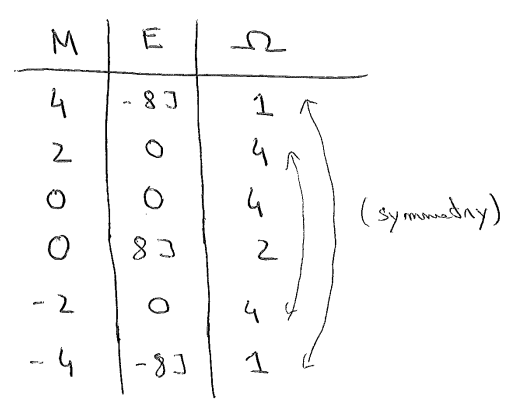 M E Ω
4 -8J 1
2 0 4
0 0 4
0 8J 2
-2 0 4
-4 -8J 1
(symmetry)